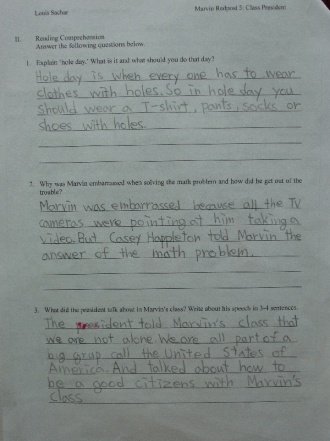 Louis Sachar Marvin Redpost 5: Class President
II. Reading Comprehension
Answer the following questions below.
1. Explain 'hole day.' What is it and what should you do that day?
Hole day is when every one has to wear
clothes with holes. So in hole day you
should wear a T-shirt, pants, socks or
shoes with holes.
2. Why was Marvin embarrassed when solving the math problem and how did he get out of the
trouble?
Marvin was embarrassed because all the TV
cameras were pointing at him taking a
video. But Casey Happleton told Marvin the
answer of the math problem.
3. What did the president talk about in Marvin's class? Write about his speech in 3-4 sentences.
The president told Marvin's class that
we are not alone. We are all part of a
big grup call the United States of
America. And talked about how to
be a good citizens with Marvin's
class